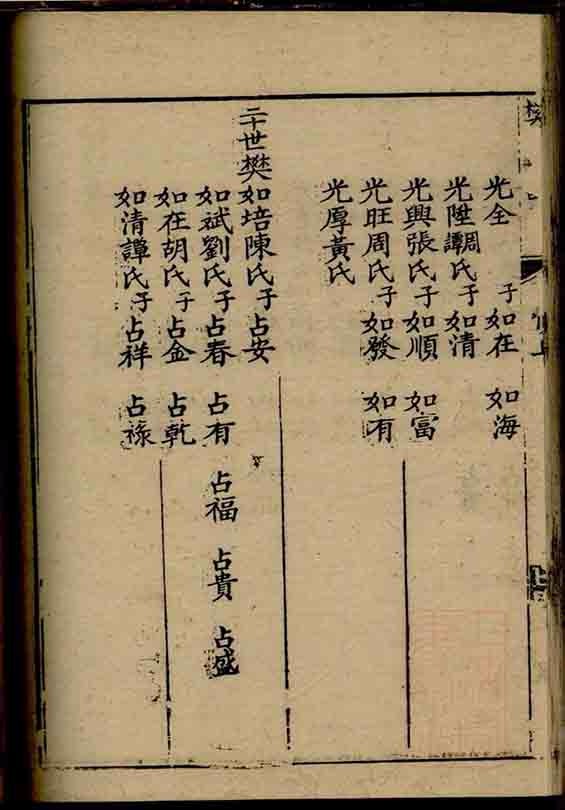 樊
光全 子如在 如海
光陞譚周氏子如清
光興張氏子如順 如富
光旺周氏子如發 如有
光厚黃氏
二十世樊如培陳氏子占安
如斌劉氏子占春 占有 占福 占貴 占盛
如在胡氏子占金 占乾
如清譚氏子占祥 占祿